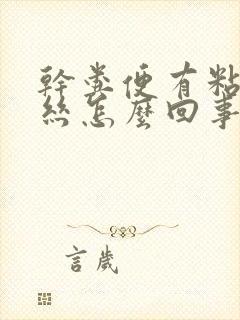 幹粪便有粘
丝怎麼回事
言歲